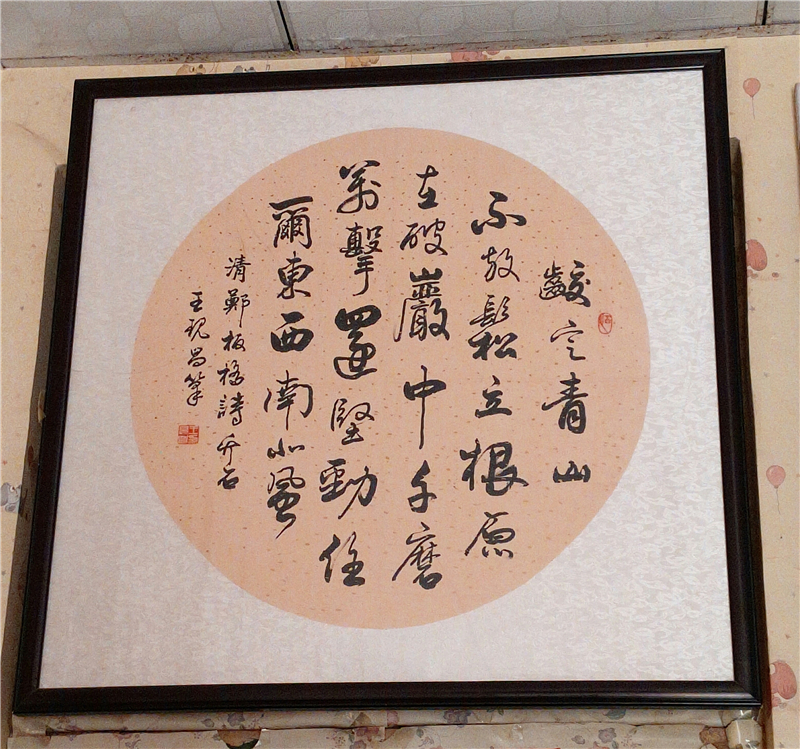 齩定青山
不放鬆立根原
在破巖中千磨
萬擊還堅勁任
爾東西南北風
清鄭板橋詩竹石
王昌筆